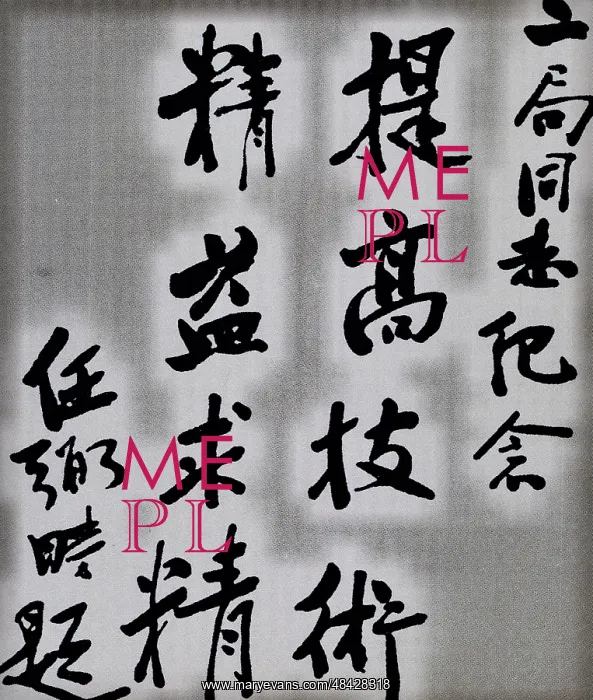 工局同志紀念
提高技術
精益求精
任弼時題
ME
PL
ME
PL
www.maryevans.com/48428318